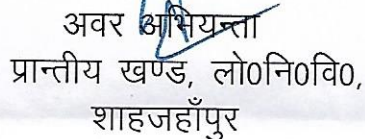 अवर अभियन्ता
प्रान्तीय खण्ड, लो0नि0वि0,
शाहजहाँपुर